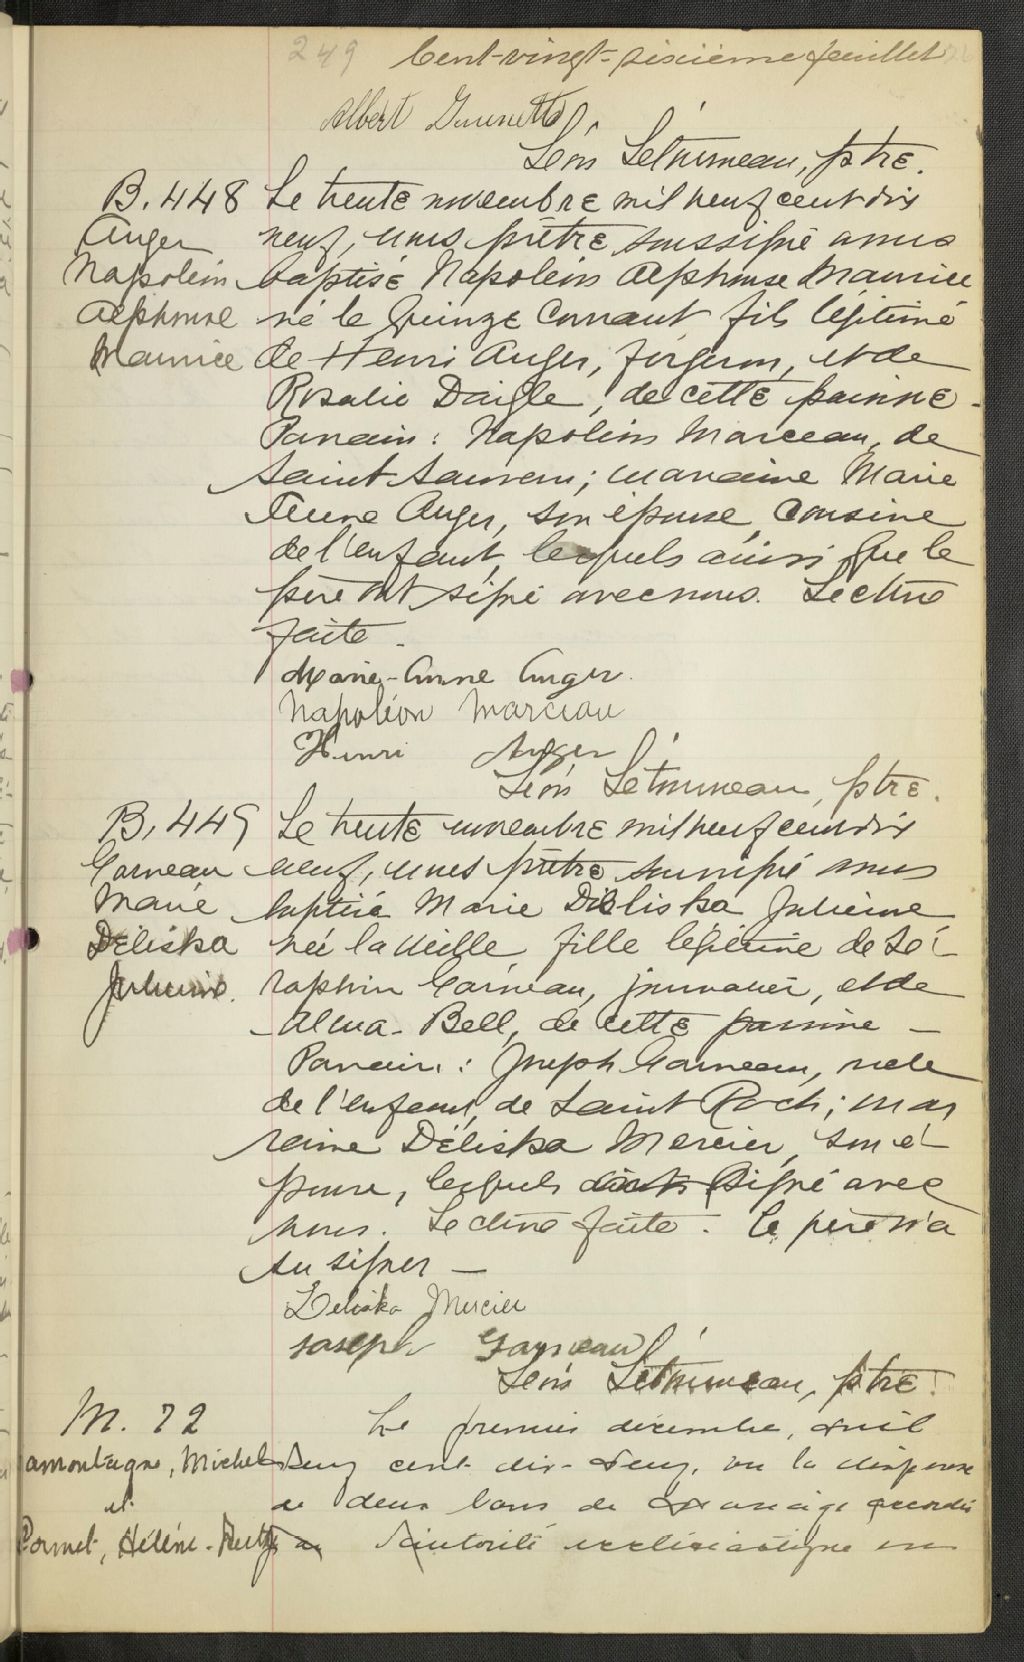 249 Cent-vingt-sixième feuillet
Albert
Léon Létourneau, ptre.
B. 448 Le trente novembre mil neuf cent dix
Auger neuf, nous prêtre soussigné avons
Napoléon baptisé Napoléon Alphonse Maurice
Alphonse né le quinze courant fils légitime
Maurice de Henri Auger, forgeron, et de
Rosalie Daigle, de cette paroisse.
Parrain: Napoléon Marceau, de
Saint Sauveur; marraine Marie
Anne Auger, son épouse, cousine
de l'enfant, lesquels ainsi que le
père ont signé avec nous. Lecture
faite.
Marie-Anne Auger.
Napoléon Marceau
Henri Auger
Léon Létourneau, ptre.
B. 449 Le trente novembre mil neuf cent dix
Garneau neuf, nous prêtre soussigné avons
Marie baptisé Marie Déliska Julienne
Déliska née la veille fille légitime de Sé-
Julienne. raphin Garneau, journalier, et de
Alma Bell, de cette paroisse —
Parrain: Joseph Garneau, oncle
de l'enfant, de Saint Roch; mar
raine Déliska Mercier, son é-
pouse, lesquels ont signé avec
nous. Lecture faite. Le père n'a
su signer —
Deliska Mercier
Joseph Garneau
Léon Létourneau, ptre.
M. 72 Le premier décembre, mil
amontagne, Michel neuf cent dix-neuf, vu la dispense
et de deux bans de mariage accordée
Hélène- l'autorité ecclésiastique